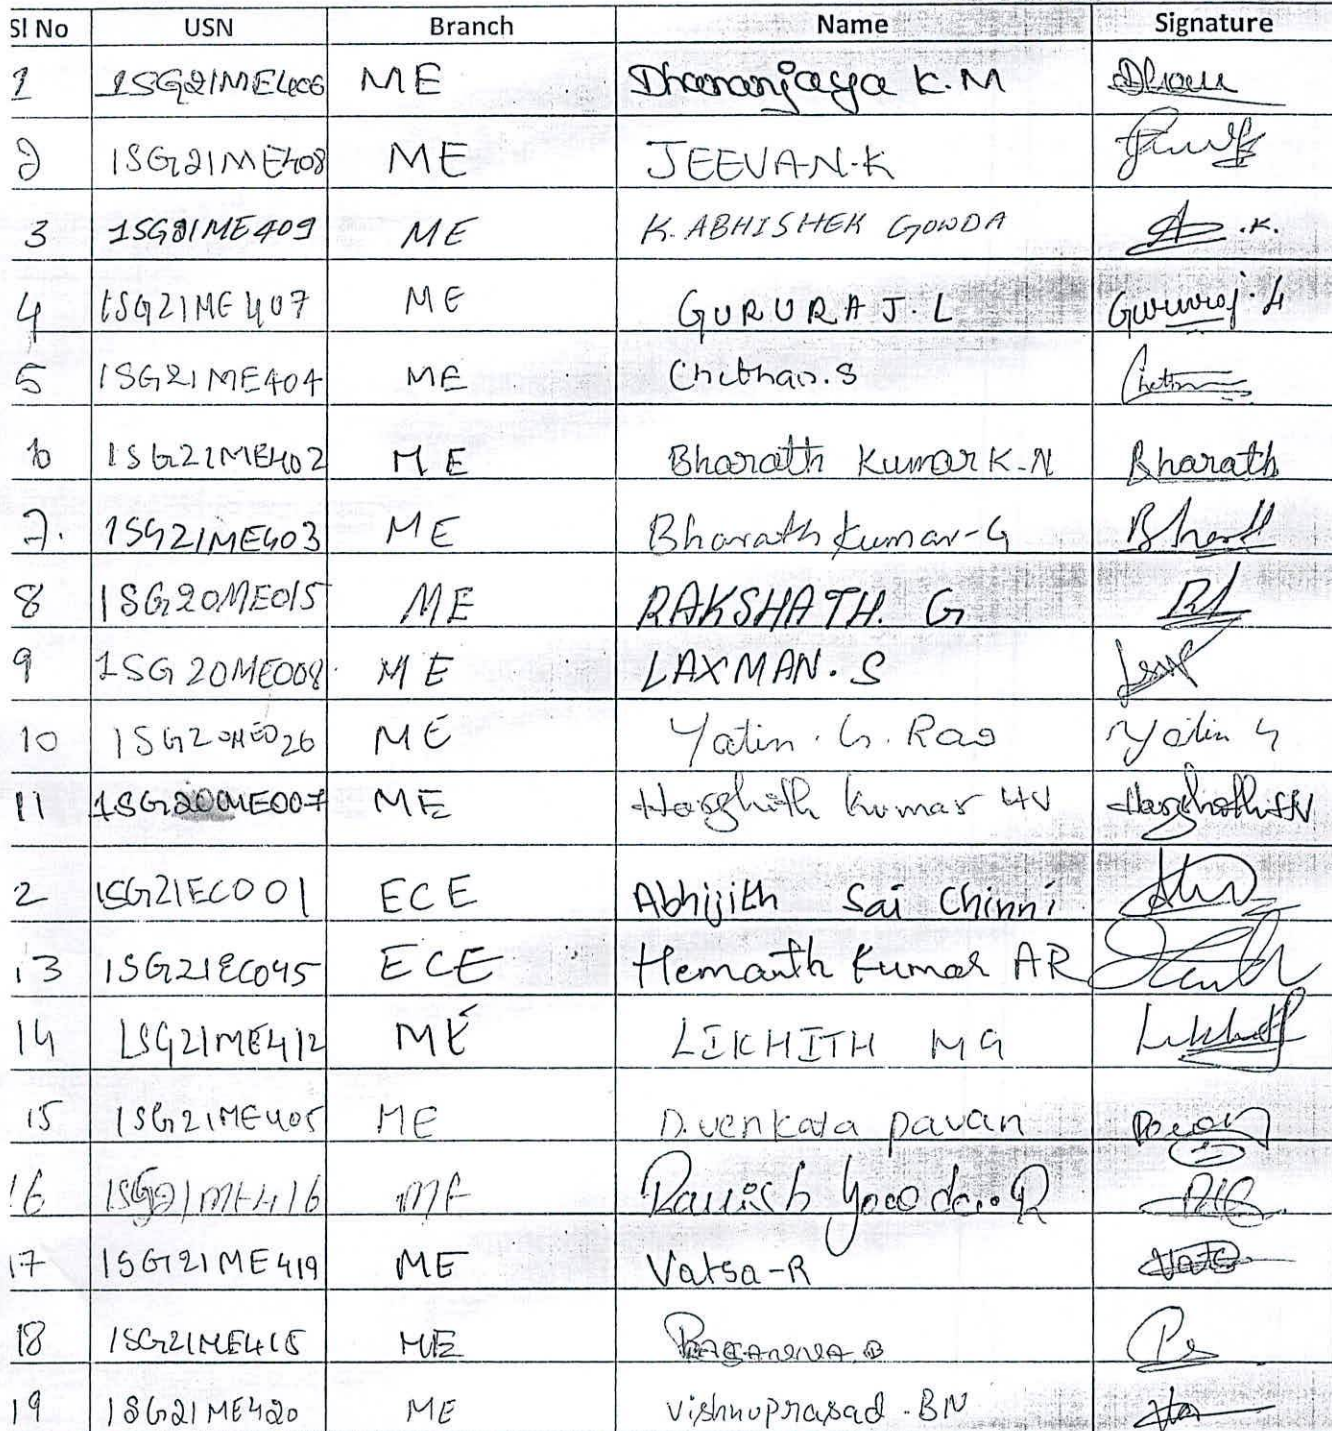 Sl No USN Branch Name Signature
1 1SG21ME406 ME Dhananjaya K.M
2 1SG21ME408 ME JEEVAN.K
3 1SG21ME409 ME K. ABHISHEK GOWDA A .K.
4 1SG21ME407 ME GURURAJ.L Gururaj.L
5 1SG21ME404 ME Chethan.S Chethan
6 1SG21ME402 ME Bharath Kumar K.N Bharath
7. 1SG21ME403 ME Bharath Kumar-G Bharath
8 1SG20ME015 ME RAKSHATH. G.
9 1SG20ME008 ME LAXMAN.S
10 1SG20ME026 ME Yatin.G.Rao Yatin G
11 1SG20ME007 ME Harshith Kumar HN Harshith HN
2 1SG21EC001 ECE Abhijith Sai Chinni
13 1SG21EC045 ECE Hemanth Kumar AR
14 1SG21ME412 ME LIKHITH MG Likhith
15 1SG21ME405 ME D.venkata pavan
16 1SG21ME416 ME Gowda.R
17 1SG21ME419 ME Vatsa-R Vats
18 1SG21ME415 ME
19 1SG21ME420 ME Vishnuprasad.BN